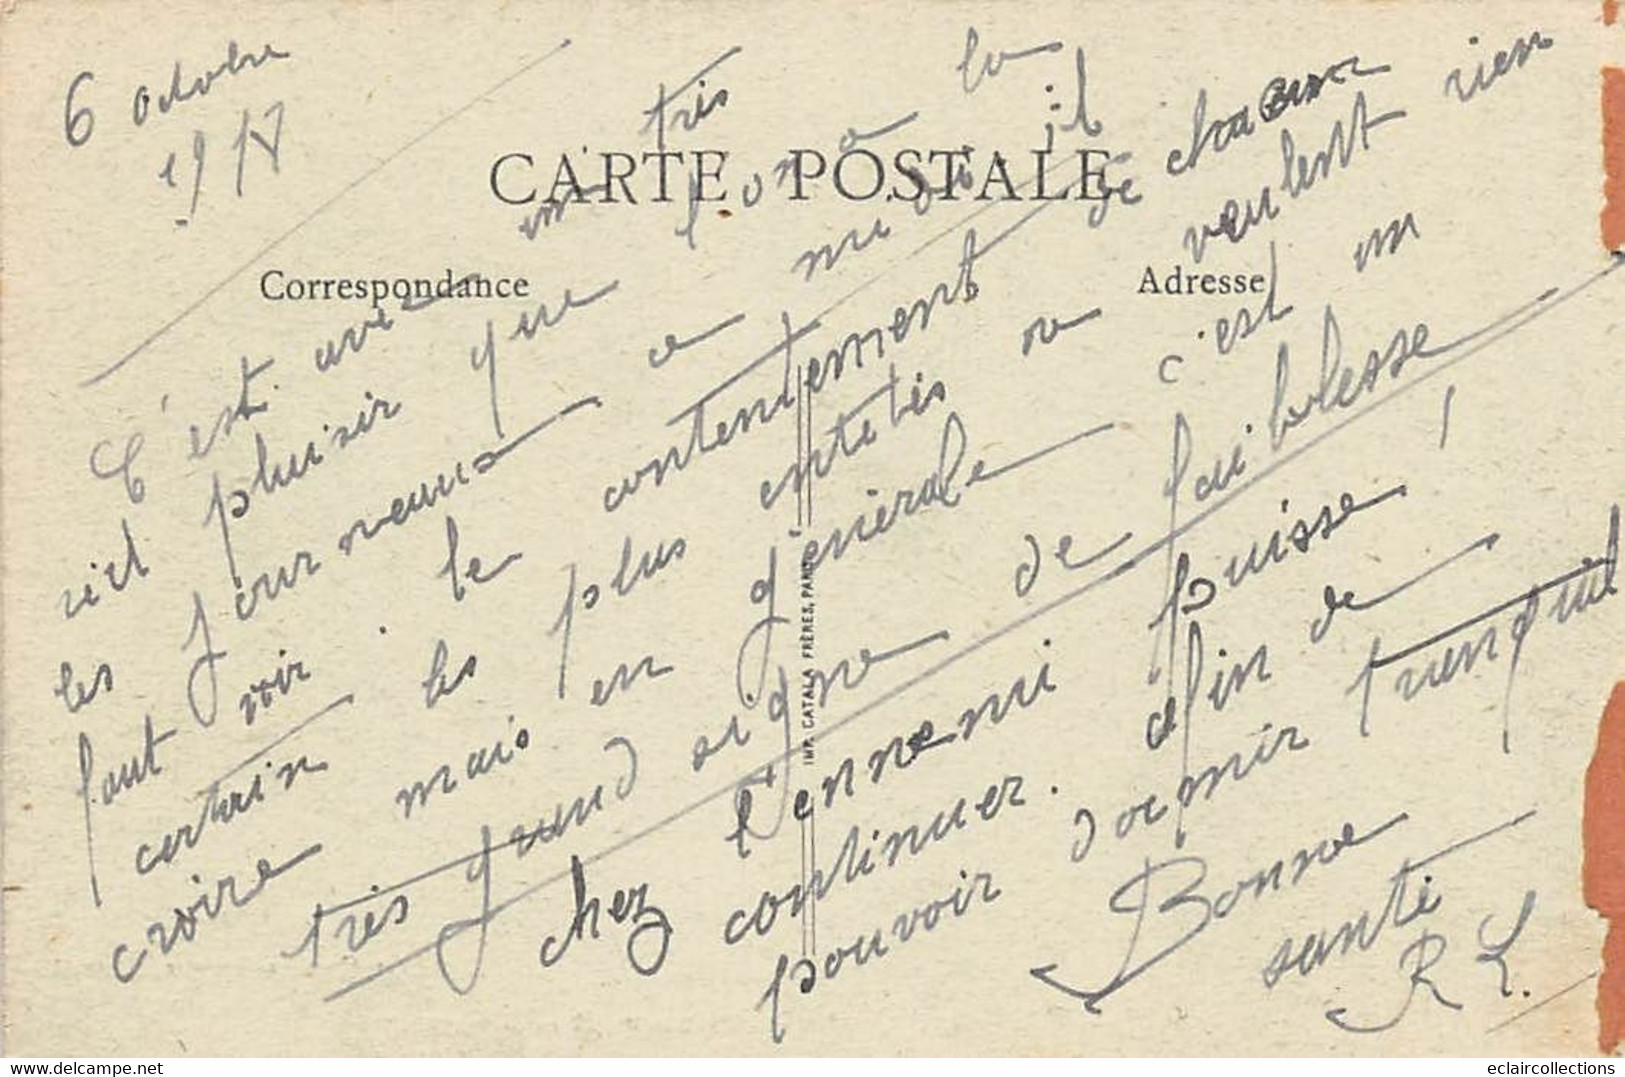 6 octobre
1917
CARTE POSTALE
Correspondance
Adresse
C'est avec un très
réel plaisir que l'on a lu
les journeaux ce midi il
faut voir le contentement de chacun
certain les plus entêtés ne veulent rien
croire mais en général c'est un
très grand signe de faiblesse
chez l'ennemi puisse
continuer. afin de
pouvoir dormir tranquil
Bonne
santé
R L.
IMP. CATALA FRÈRES, PARIS
eclaircollections